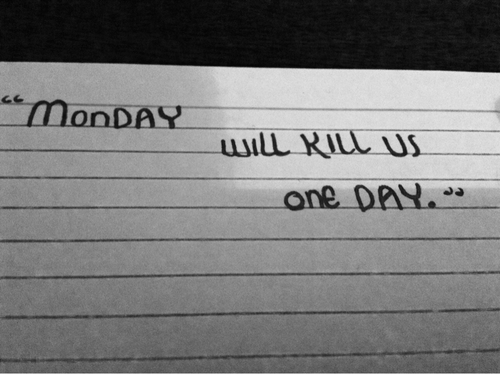 “MonDAY
WILL KILL US
ONE DAY.”